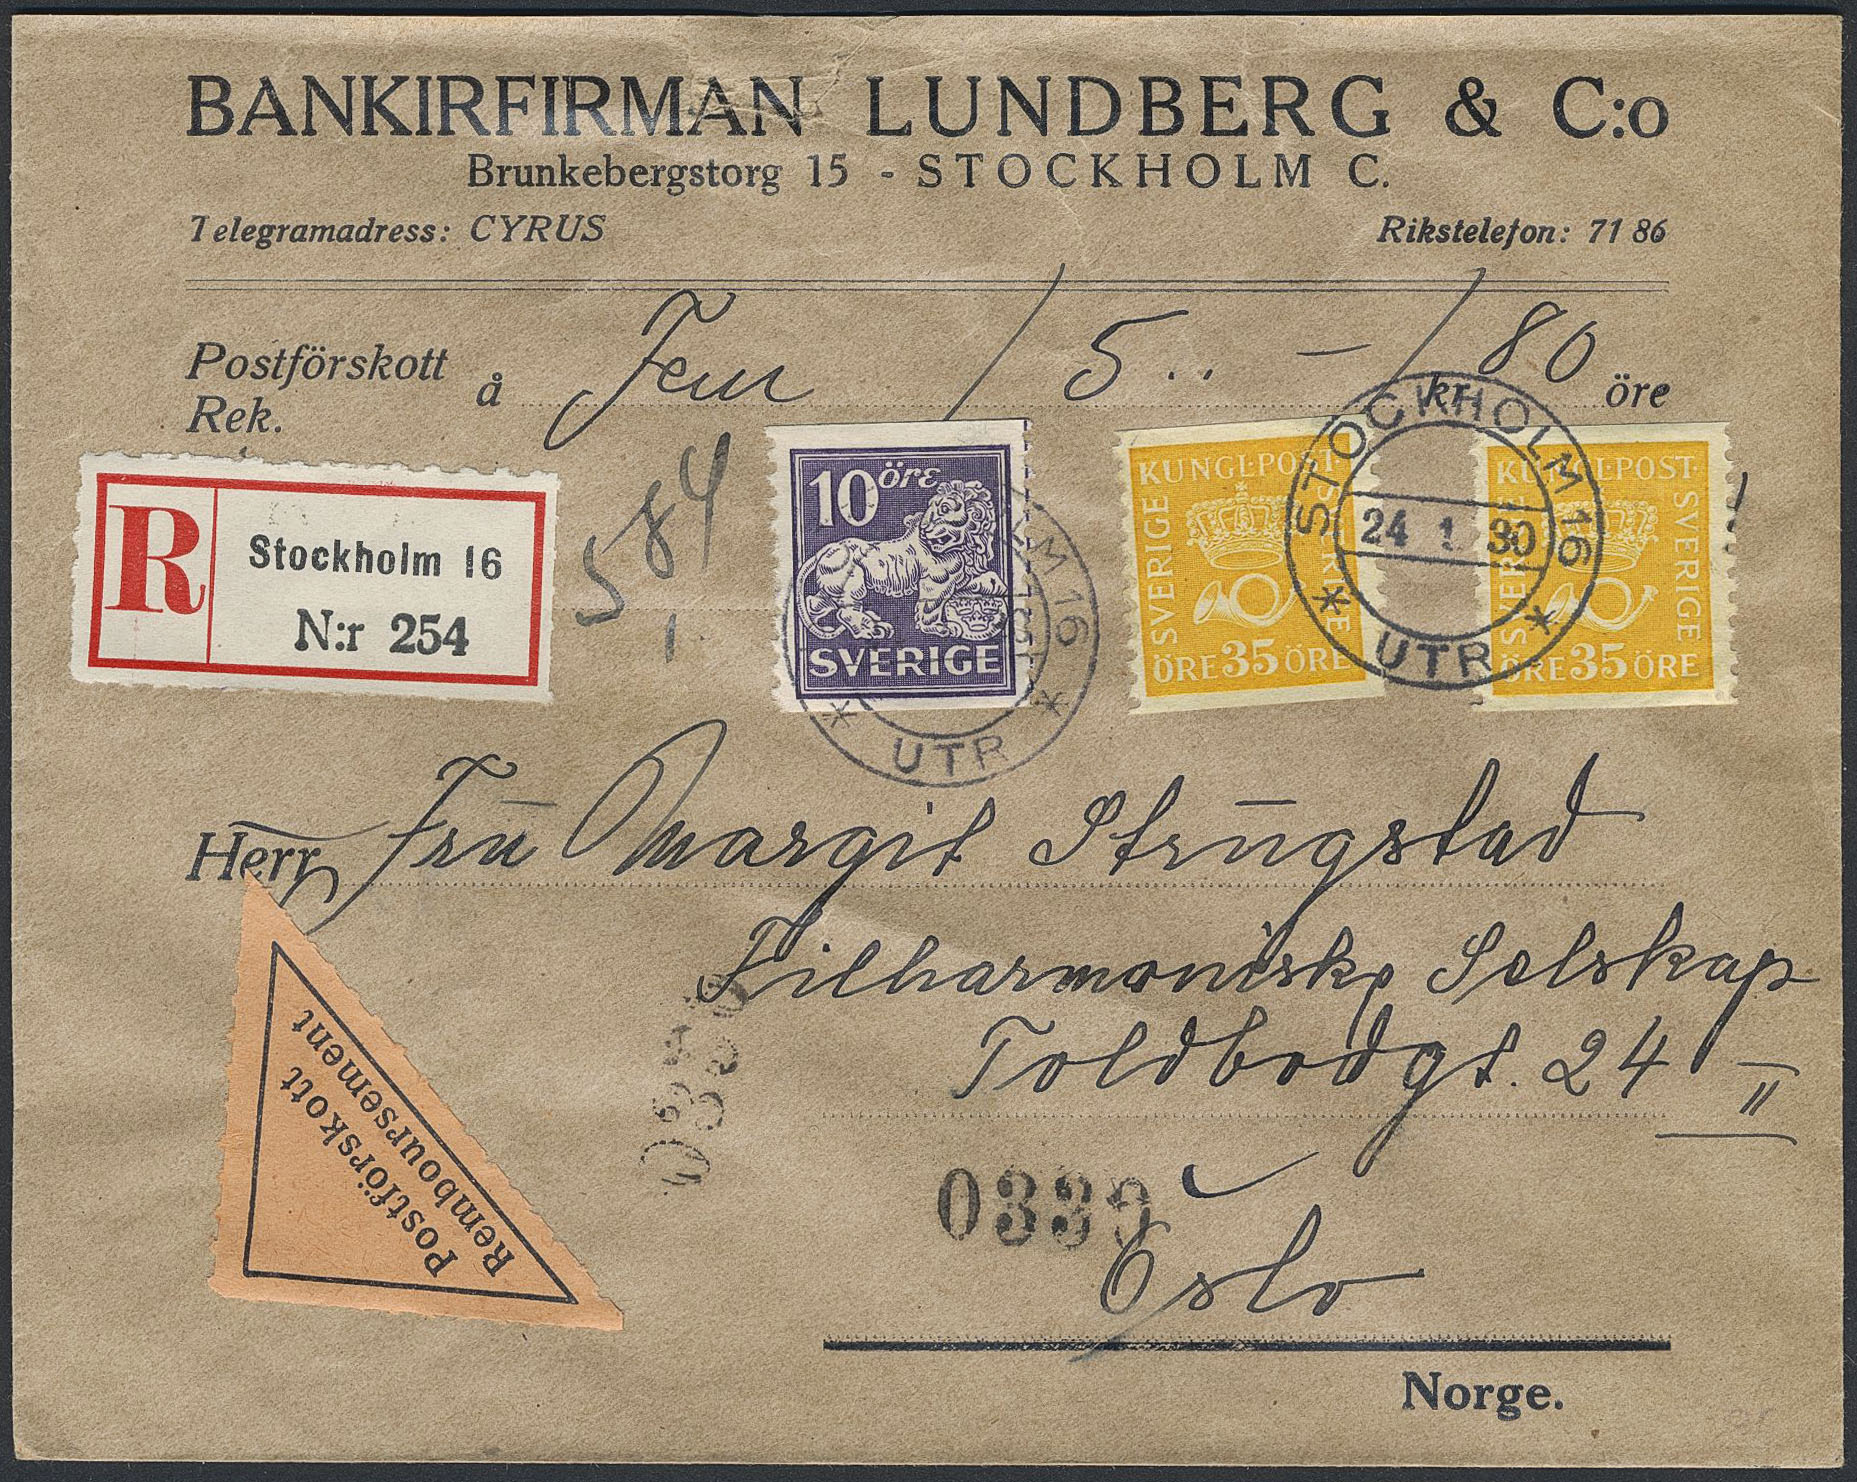 BANKIRFIRMAN LUNDBERG & C:o
Brunkebergstorg 15 - STOCKHOLM C.
Telegramadress: CYRUS
Rikstelefon: 71 86
Postförskott
Rek.
å Fem / 5.. - / 80
kr
öre
R
Stockholm 16
N:r 254
584
1
10 öre
SVERIGE
LM 16
UTR
KUNGL·POST·
SVERIGE
SVERIGE
ÖRE 35 ÖRE
STOCKHOLM 16
24 1. 30
UTR
KUNGL·POST·
SVERIGE
SVERIGE
ÖRE 35 ÖRE
Herr Fru Margit Strugstad
Filharmoniske Selskap
Toldbodgt. 24 II
Postförskott
Remboursement
0339
Oslo
Norge.